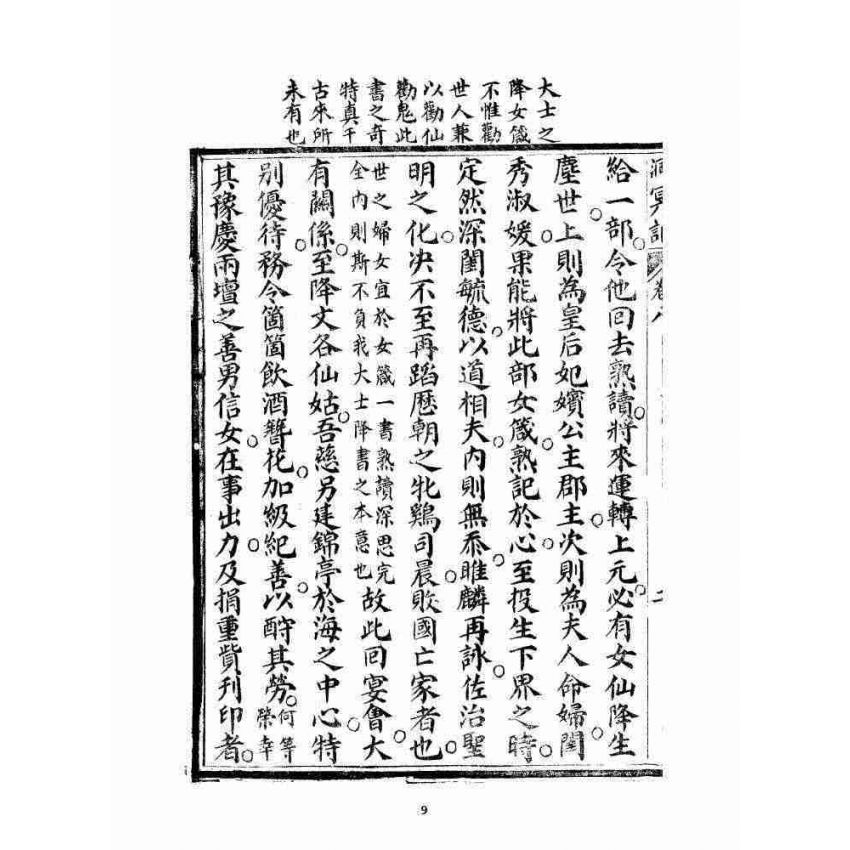 大士之
降女箴
不惟勸
世人兼
以勸仙
勸鬼此
書之奇
特真千
古來所
未有也
洞冥記 卷八 二
給一部。令他回去熟讀。將來運轉上元。必有女仙降生
塵世。上則為皇后妃嬪公主郡主。次則為夫人命婦。閨
秀淑媛。果能將此部女箴。熟記於心。至投生下界之時。
定然深閨毓德。以道相夫。內則無忝。睢麟再詠。佐治聖
明之化。決不至再蹈歷朝之牝鷄司晨。敗國亡家者也。
世之婦女宜於女箴一書熟讀深思完
全內則斯不負我大士降書之本意也
故此回宴會。大
有關係。至降文各仙姑。吾慈另建錦亭於海之中心。特
別優待。務令箇箇飲酒簪花。加級紀善。以酧其勞。何等
榮幸
其豫慶兩壇之善男信女。在事出力。及捐重貲刊印者。
9